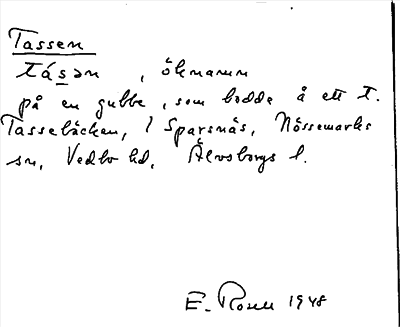 Tassen
tásən , öknamn
på en gubbe, som bodde å ett t.
Tassebäcken, i Sparsnäs, Nössemarks
sn, Vedbo hd, Älvsborgs l.
E. Rosell 1948